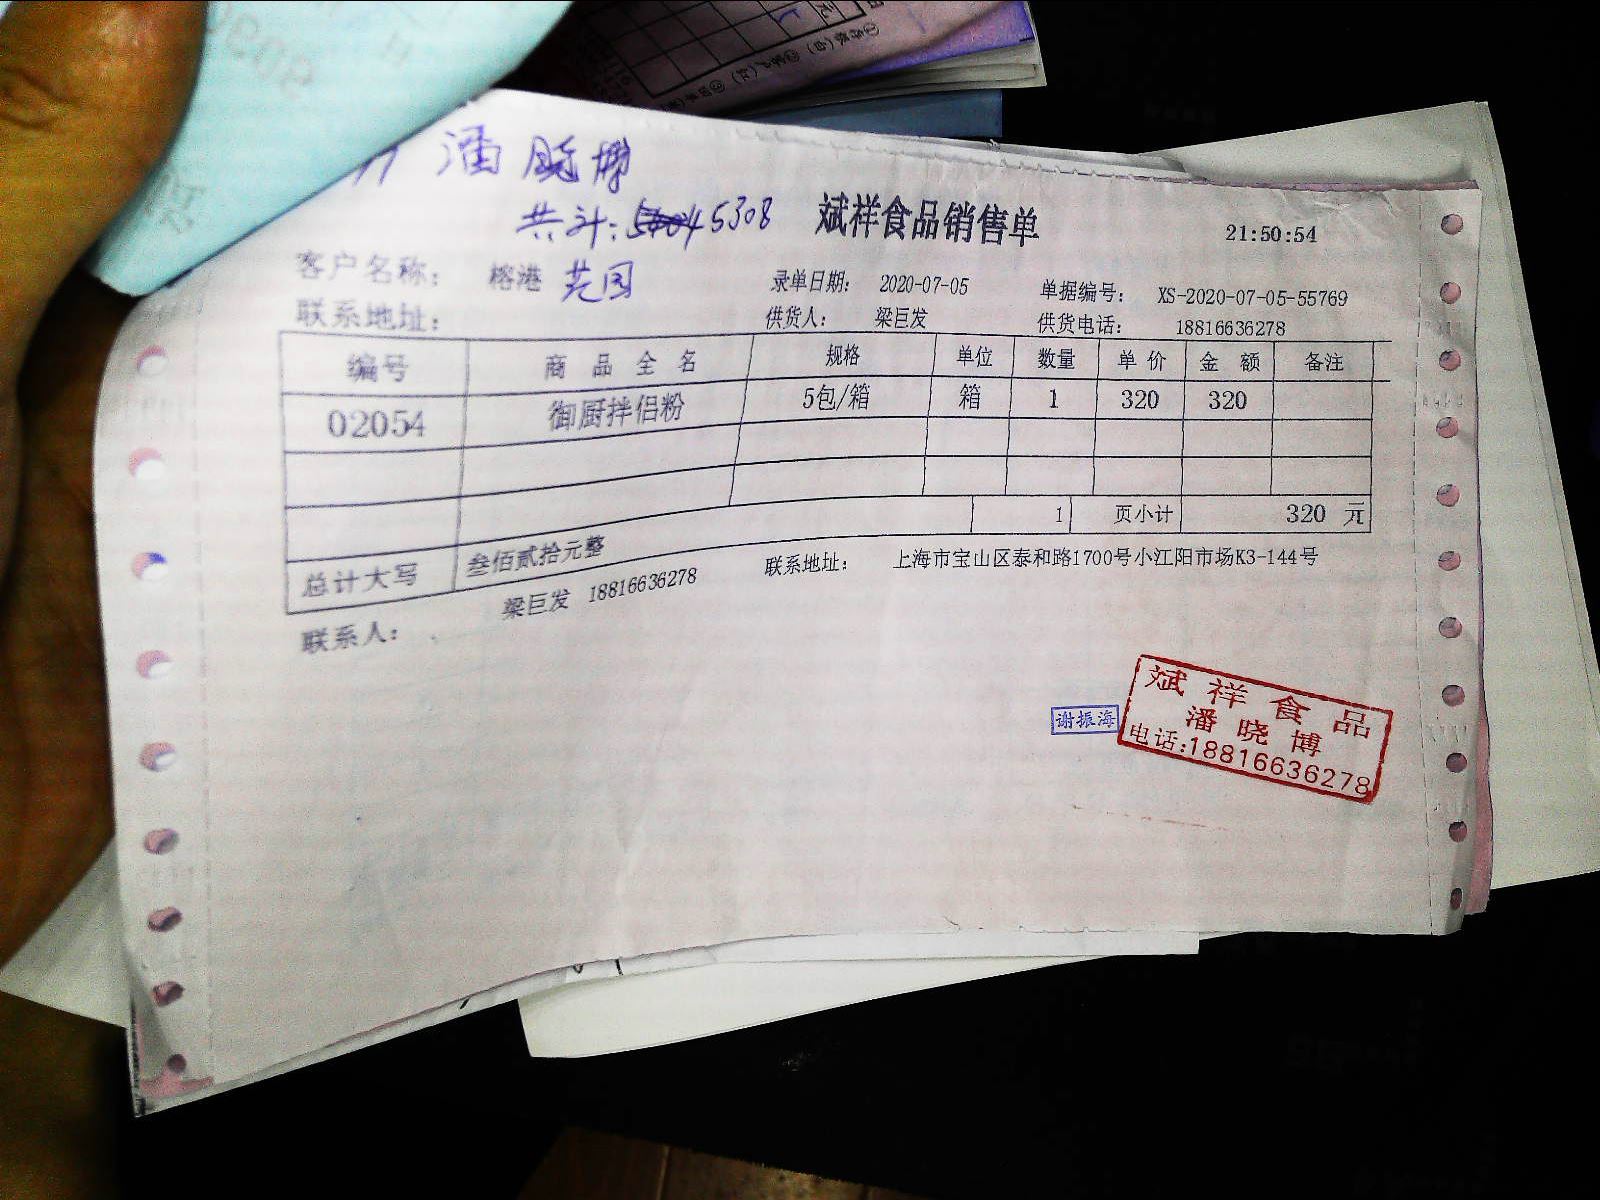 潘晓博
共计：45308
斌祥食品销售单
21:50:54
客户名称： 榕港 芫园 录单日期： 2020-07-05 单据编号： XS-2020-07-05-55769
联系地址： 供货人： 梁巨发 供货电话： 18816636278
编号 商品全名 规格 单位 数量 单价 金额 备注
02054 御厨拌侣粉 5包/箱 箱 1 320 320
1 页小计 320 元
总计大写 叁佰贰拾元整
联系人： 梁巨发 18816636278 联系地址： 上海市宝山区泰和路1700号小江阳市场K3-144号
谢振海
斌祥食品
潘晓博
电话:18816636278